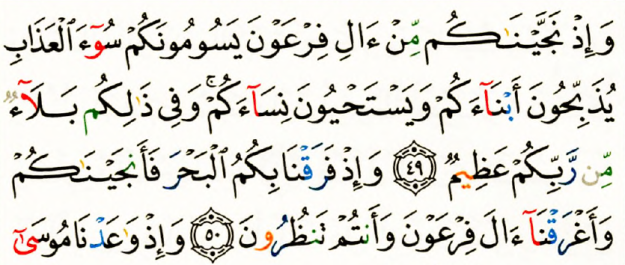 وَإِذْ نَجَّيْنَٰكُم مِّنْ ءَالِ فِرْعَوْنَ يَسُومُونَكُمْ سُوٓءَ ٱلْعَذَابِ
يُذَبِّحُونَ أَبْنَآءَكُمْ وَيَسْتَحْيُونَ نِسَآءَكُمْ ۚ وَفِى ذَٰلِكُم بَلَآءٌ
مِّن رَّبِّكُمْ عَظِيمٌ ﴿٤٩﴾ وَإِذْ فَرَقْنَا بِكُمُ ٱلْبَحْرَ فَأَنجَيْنَٰكُمْ
وَأَغْرَقْنَآ ءَالَ فِرْعَوْنَ وَأَنتُمْ تَنظُرُونَ ﴿٥٠﴾ وَإِذْ وَٰعَدْنَا مُوسَىٰٓ